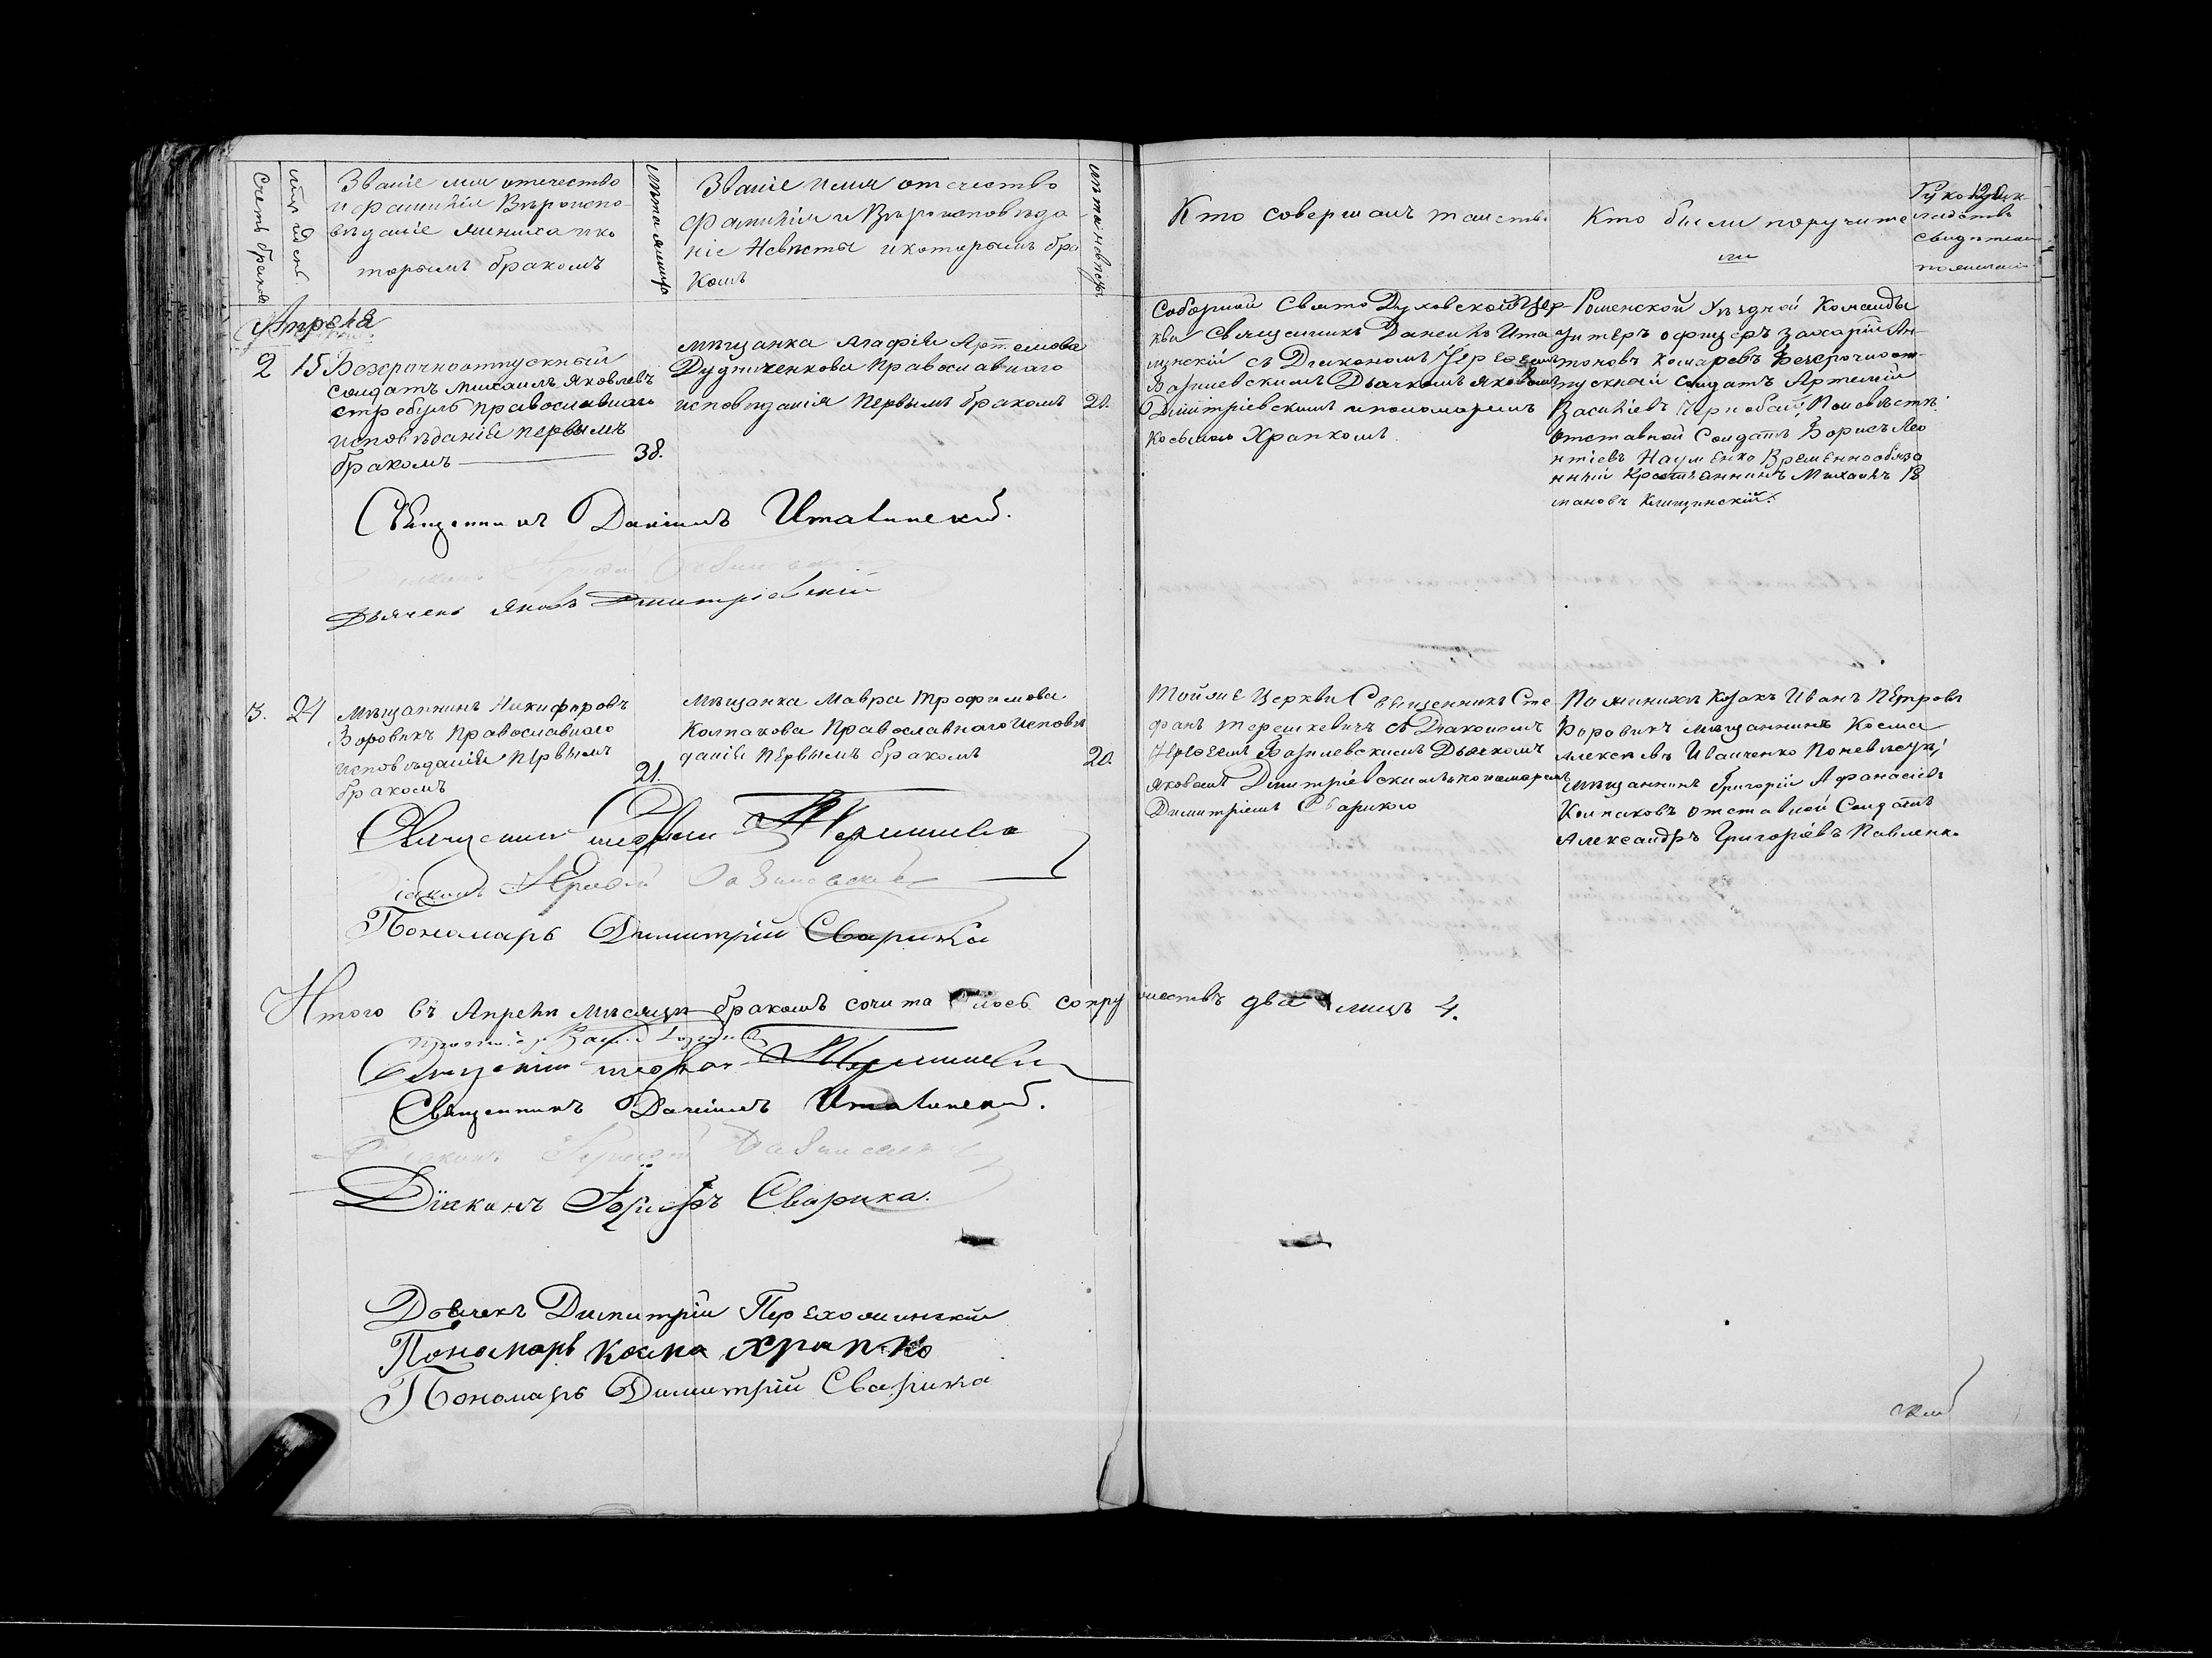 Счетъ браковъ
Мѣс. и день
Званіе имя отечество
и фамилія Вѣроиспо-
вѣданіе жениха и ко
торымъ бракомъ
Лѣта жениха
Званіе имя отечество
фамилія и Вѣроисповѣда-
ніе Невѣсты и которымъ бра
комъ
Лѣта невѣсты
Кто совершалъ таинство
Кто были поручите
ли
Рукоприк-
ладство
свидѣтелей
по желанію
Апрѣля
2 15 Безсрочноотпускный
солдатъ Михаилъ Яковлевъ
Стребуль православнаго
исповѣданія первымъ
бракомъ 38.
мѣщанка Агафія Артемова
Дудниченкова Православнаго
исповѣданія первымъ бракомъ 21.
Соборной Свято Духовской Цер
кви Священникъ Даніилъ
съ Діакономъ
Базилевскимъ Дьячкомъ Яковомъ
Димитріевскимъ и пономаремъ
Косьмою Храпкомъ.
Роменской Уѣздной Команды
унтеръ офицеръ Захарій Ан-
тоновъ Комаревъ Безсрочноот-
пускный солдатъ Артемій
Василіевъ Чернобай; По невѣстѣ:
отставной Солдатъ Борисъ Лео
нтіевъ Науменко Временнообяза
нный Крестьянинъ Михаилъ
мановъ Клищинскій.
Священникъ Даніилъ
Дьячекъ Яковъ Димитріевскій
3. 24 Мѣщанинъ Никифоръ
Боровикъ Православнаго
исповѣданія первымъ
бракомъ 21.
Мѣщанка Мавра Трофимова
Колпакова Православнаго исповѣ
данія первымъ бракомъ 20.
Той же Церкви Священникъ Сте
фанъ Терешкевичъ съ Діакономъ
Базилевскимъ Дьячкомъ
Яковомъ Димитріевскимъ и пономаремъ
Димитріемъ Сварикою
По женихѣ Козакъ Иванъ Петровъ
Боровикъ мѣщанинъ Косма
Алексѣевъ Иваченко По невѣстѣ;
Мѣщанинъ Григорій Афанасіевъ
Колпаковъ отставной Солдатъ
Александръ Григоріевъ Павленко
Священникъ Стефанъ Терешкевичъ
Діаконъ Базилевскій
Пономарь Димитрій Сварика
Итого въ Апрели мѣсяцѣ бракомъ сочиталось супружествъ два лицъ 4.
Священникъ Стефанъ Терешкевичъ
Священникъ Даніилъ
Діаконъ Базилевскій
Діаконъ Сварика.
Дьячекъ Димитрій
Пономарь Косма Храпко
Пономарь Димитрій Сварика